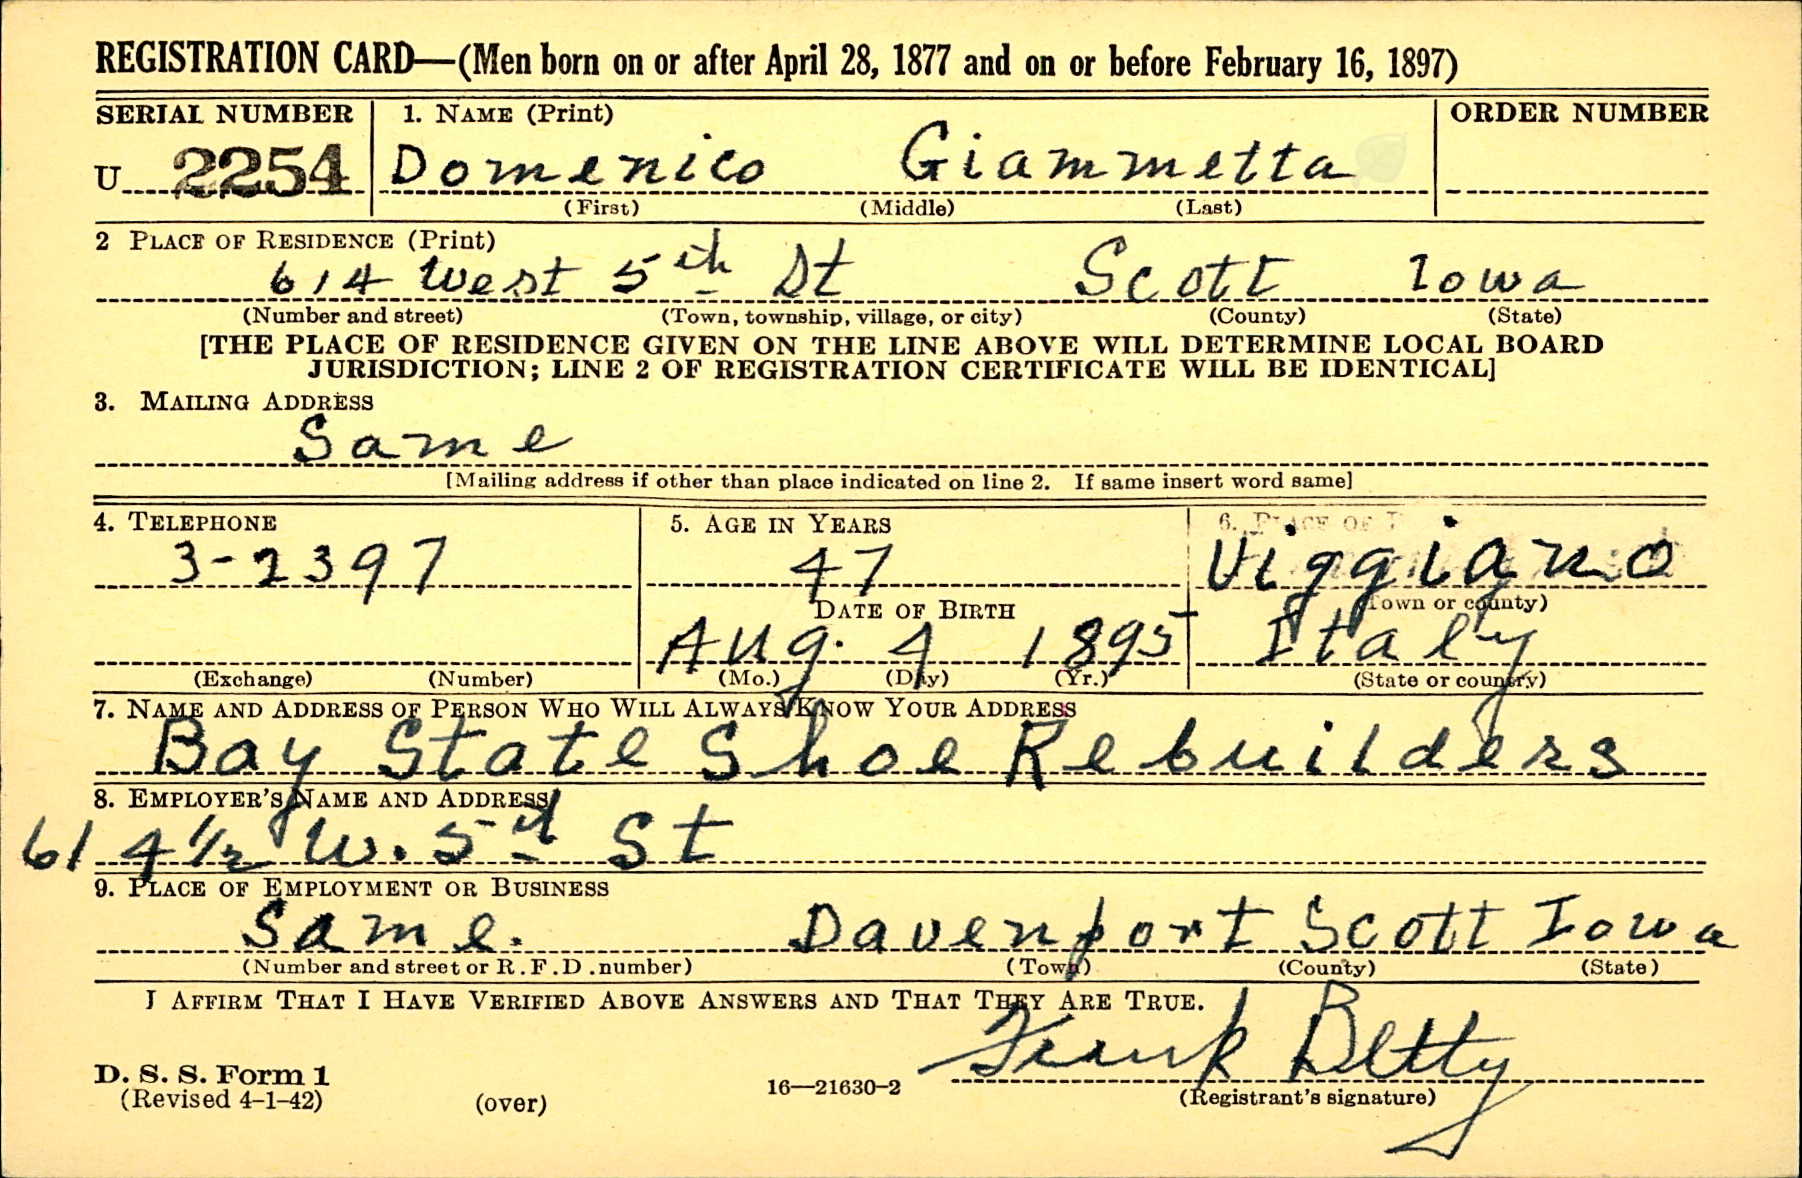 REGISTRATION CARD—(Men born on or after April 28, 1877 and on or before February 16, 1897)
SERIAL NUMBER 1. NAME (Print) ORDER NUMBER
U 2254 Domenico Giammetta
(First) (Middle) (Last)
2 PLACE OF RESIDENCE (Print)
614 West 5th St Scott Iowa
(Number and street) (Town, township, village, or city) (County) (State)
[THE PLACE OF RESIDENCE GIVEN ON THE LINE ABOVE WILL DETERMINE LOCAL BOARD
JURISDICTION; LINE 2 OF REGISTRATION CERTIFICATE WILL BE IDENTICAL]
3. MAILING ADDRESS
Same
[Mailing address if other than place indicated on line 2. If same insert word same]
4. TELEPHONE 5. AGE IN YEARS 6. PLACE OF
3-2397 47 Viggiano
DATE OF BIRTH (Town or county)
Aug. 4 1895 Italy
(Exchange) (Number) (Mo.) (Day) (Yr.) (State or country)
7. NAME AND ADDRESS OF PERSON WHO WILL ALWAYS KNOW YOUR ADDRESS
Bay State Shoe Rebuilders
8. EMPLOYER'S NAME AND ADDRESS
614½ W. 5th St
9. PLACE OF EMPLOYMENT OR BUSINESS
Same. Davenport Scott Iowa
(Number and street or R.F.D. number) (Town) (County) (State)
I AFFIRM THAT I HAVE VERIFIED ABOVE ANSWERS AND THAT THEY ARE TRUE.
Frank Betty
D. S. S. Form 1
(Revised 4-1-42) (over) 16—21630-2 (Registrant's signature)